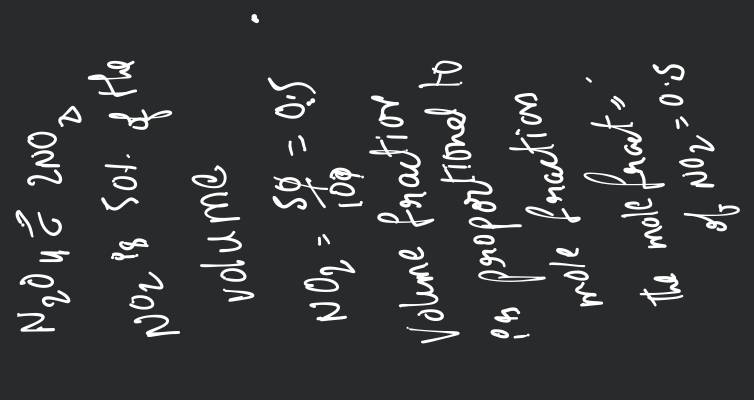 N₂O₄ ⇌ 2NO₂
NO₂ is 50%. of the
volume
NO₂ = 50/100 = 0.5
Volume fraction
is proportional to
mole fraction
the mole fract"
of NO₂ = 0.5